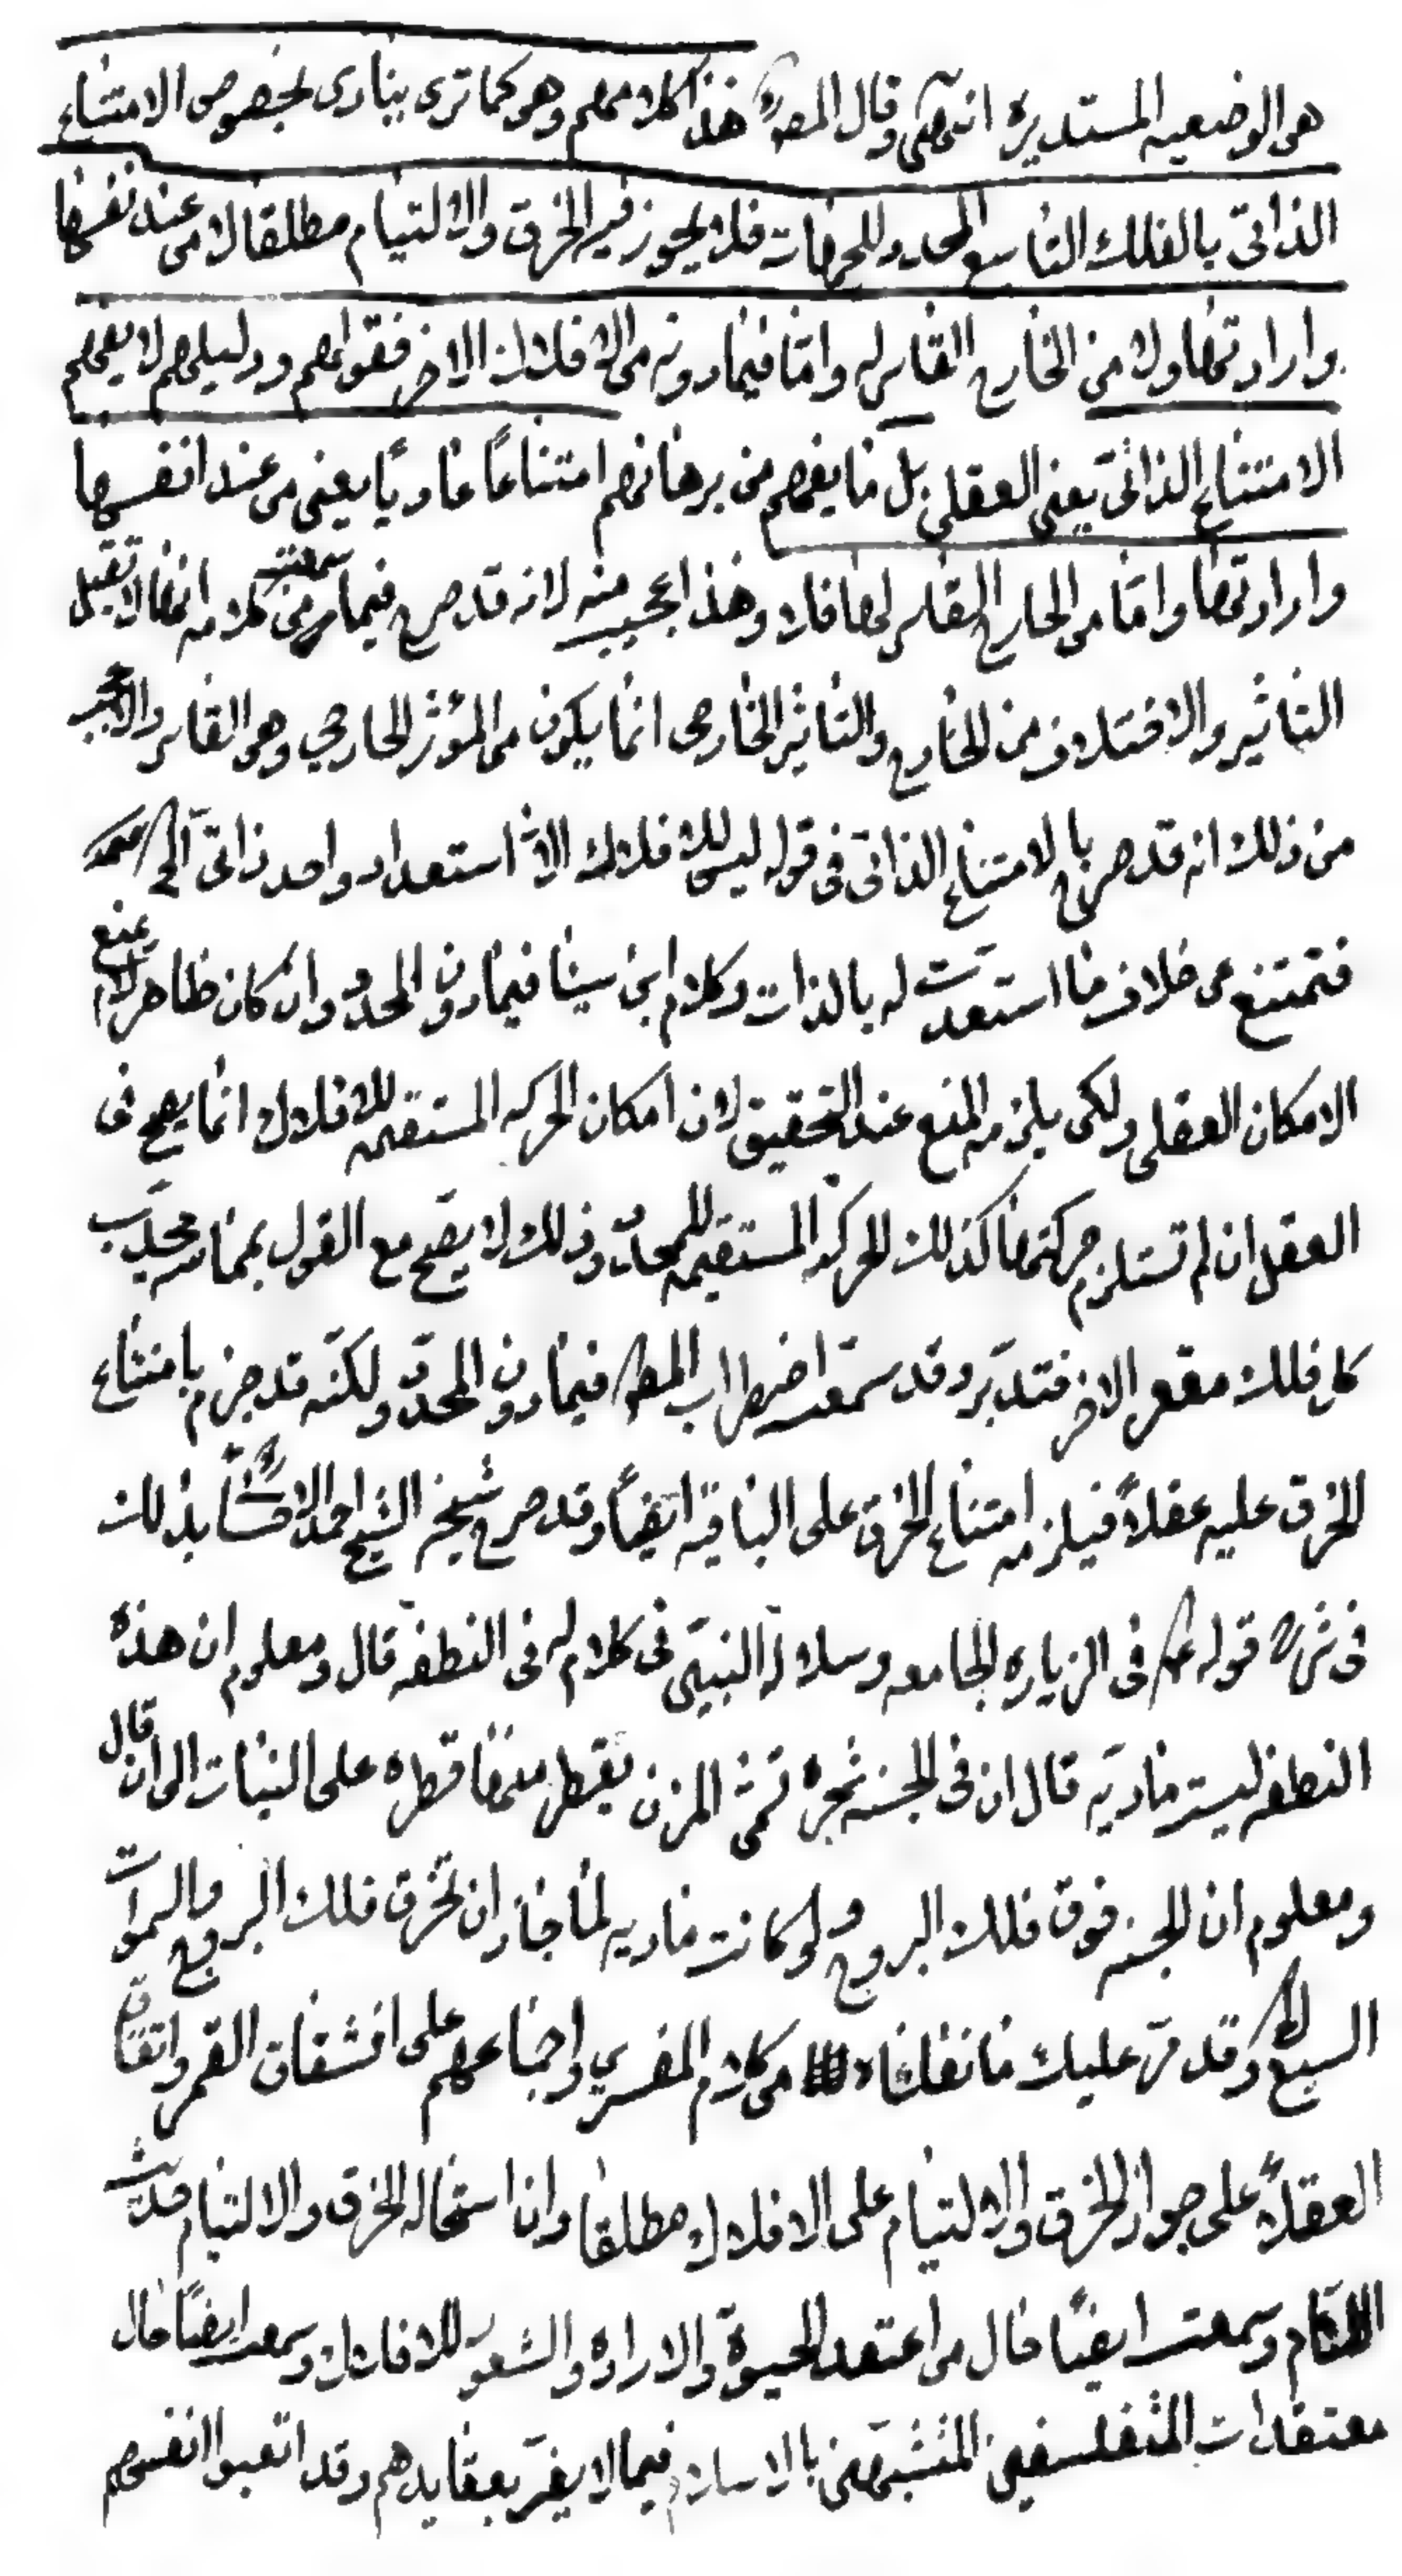 هى الوضعيه المستديره انتهى وقال المصره هذا كلامهم وهو كما ترى ينادى بخصوص الامتناع
الذاتى بالفلك التاسع المحدد للجهات فلا يجوز فيه الخرق والالتيام مطلقا لا من عند نفسها
وارادتها ولا من الخارج القاسر له واما فيما دونه من الافلاك الاخر فقولهم ودليلهم لا يفهم
الامتناع الذاتى يعنى العقلى بل ما يفهم من برهانهم امتناعاً عادياً يعنى من عند انفسها
وارادتها واما من الخارج القاسر لها فلا وهذا عجيب منه لانه قد صرح فيما سمعت من كلامه انها لا تقبل
التاثير والاختلاف من الخارج والتاثير الخارجى انما يكون من المؤثر الخارجي وهو القاسر والاعجب
من ذلك انه قد صرح بالامتناع الذاتى فى قوله ليس للافلاك الا استعداد واحد ذاتى الخ
فتمتنع عن خلاف ما استعدت له بالذات وكلام ابن سينا فيما دون المحدد وان كان ظاهر لا يمنع
الامكان العقلى ولكن يلزمه المنع عند التحقيق لان امكان الحركه المستقيمه للافلاك انما يصح فى
العقل ان لم تستلزم حركتها كذلك للحركه المستقيمه للمحدد وذلك لا يصح مع القول بمماسه محدّب
كل فلك مقعر الاخر فتدبّر وقد سمعت اضطراب المص فيما دون المحدد ولكنّه قد جزم بامتناع
الخرق عليه عقلاً فيلزمه امتناع الخرق على الباقيه ايضاً وقد صرح شيخه الشيخ احمد الاحسائى بذلك
فى شرح قوله ع فى الزياره الجامعه وسلالة النبيّين فى كلام له فى النطفه قال ومعلوم ان هذه
النطفه ليست ماديه قال ان فى الجنه شجره تسمّى المزن يقطر منها قطره على النبات الى ان قال
ومعلوم ان الجنه فوق فلك البروج ولو كانت ماديه لما جاز ان تخرق فلك البروج والسموات
السبع الخ وقد مرّ عليك ما نقلناه من كلام المفسرين واجماعهم على انشقاق القمر واتفاق
العقلاء على جواز الخرق والالتيام على الافلاك مطلقا وان استحاله الخرق والالتيام
وسمعت ايضاً حال من اعتقد الحيوة والاراده والشعور للافلاك وسمعت ايضاً حال
معتقدات المتفلسفين المتشبّهين بالاسلام فيما لا يغرّ بعقايدهم وقد اتعبوا انفسهم